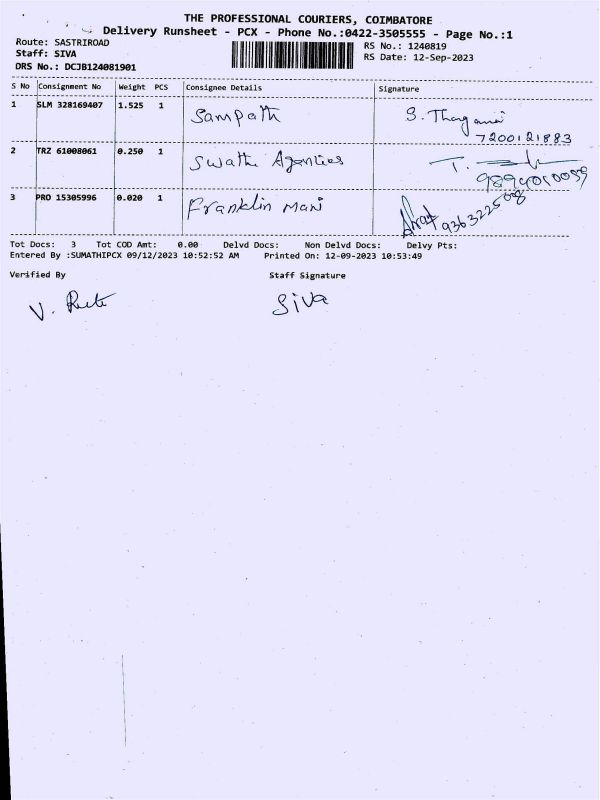 THE PROFESSIONAL COURIERS, COIMBATORE
Delivery Runsheet - PCX - Phone No.:0422-3505555 - Page No.:1
Route: SASTRIROAD
RS No.: 1240819
Staff: SIVA
RS Date: 12-Sep-2023
DRS No.: DCJB124081901
S No Consignment No Weight PCS Consignee Details Signature
1 SLM 328169407 1.525 1 Sampath S.
7200121883
2 TRZ 61008061 0.250 1 Swathi Agencies T.
9894010059
3 PRO 15305996 0.020 1 Franklin Mani
Tot Docs: 3 Tot COD Amt: 0.00 Delvd Docs: Non Delvd Docs: Delvy Pts:
Entered By :SUMATHIPCX 09/12/2023 10:52:52 AM Printed On: 12-09-2023 10:53:49
Verified By Staff Signature
V. SIVA